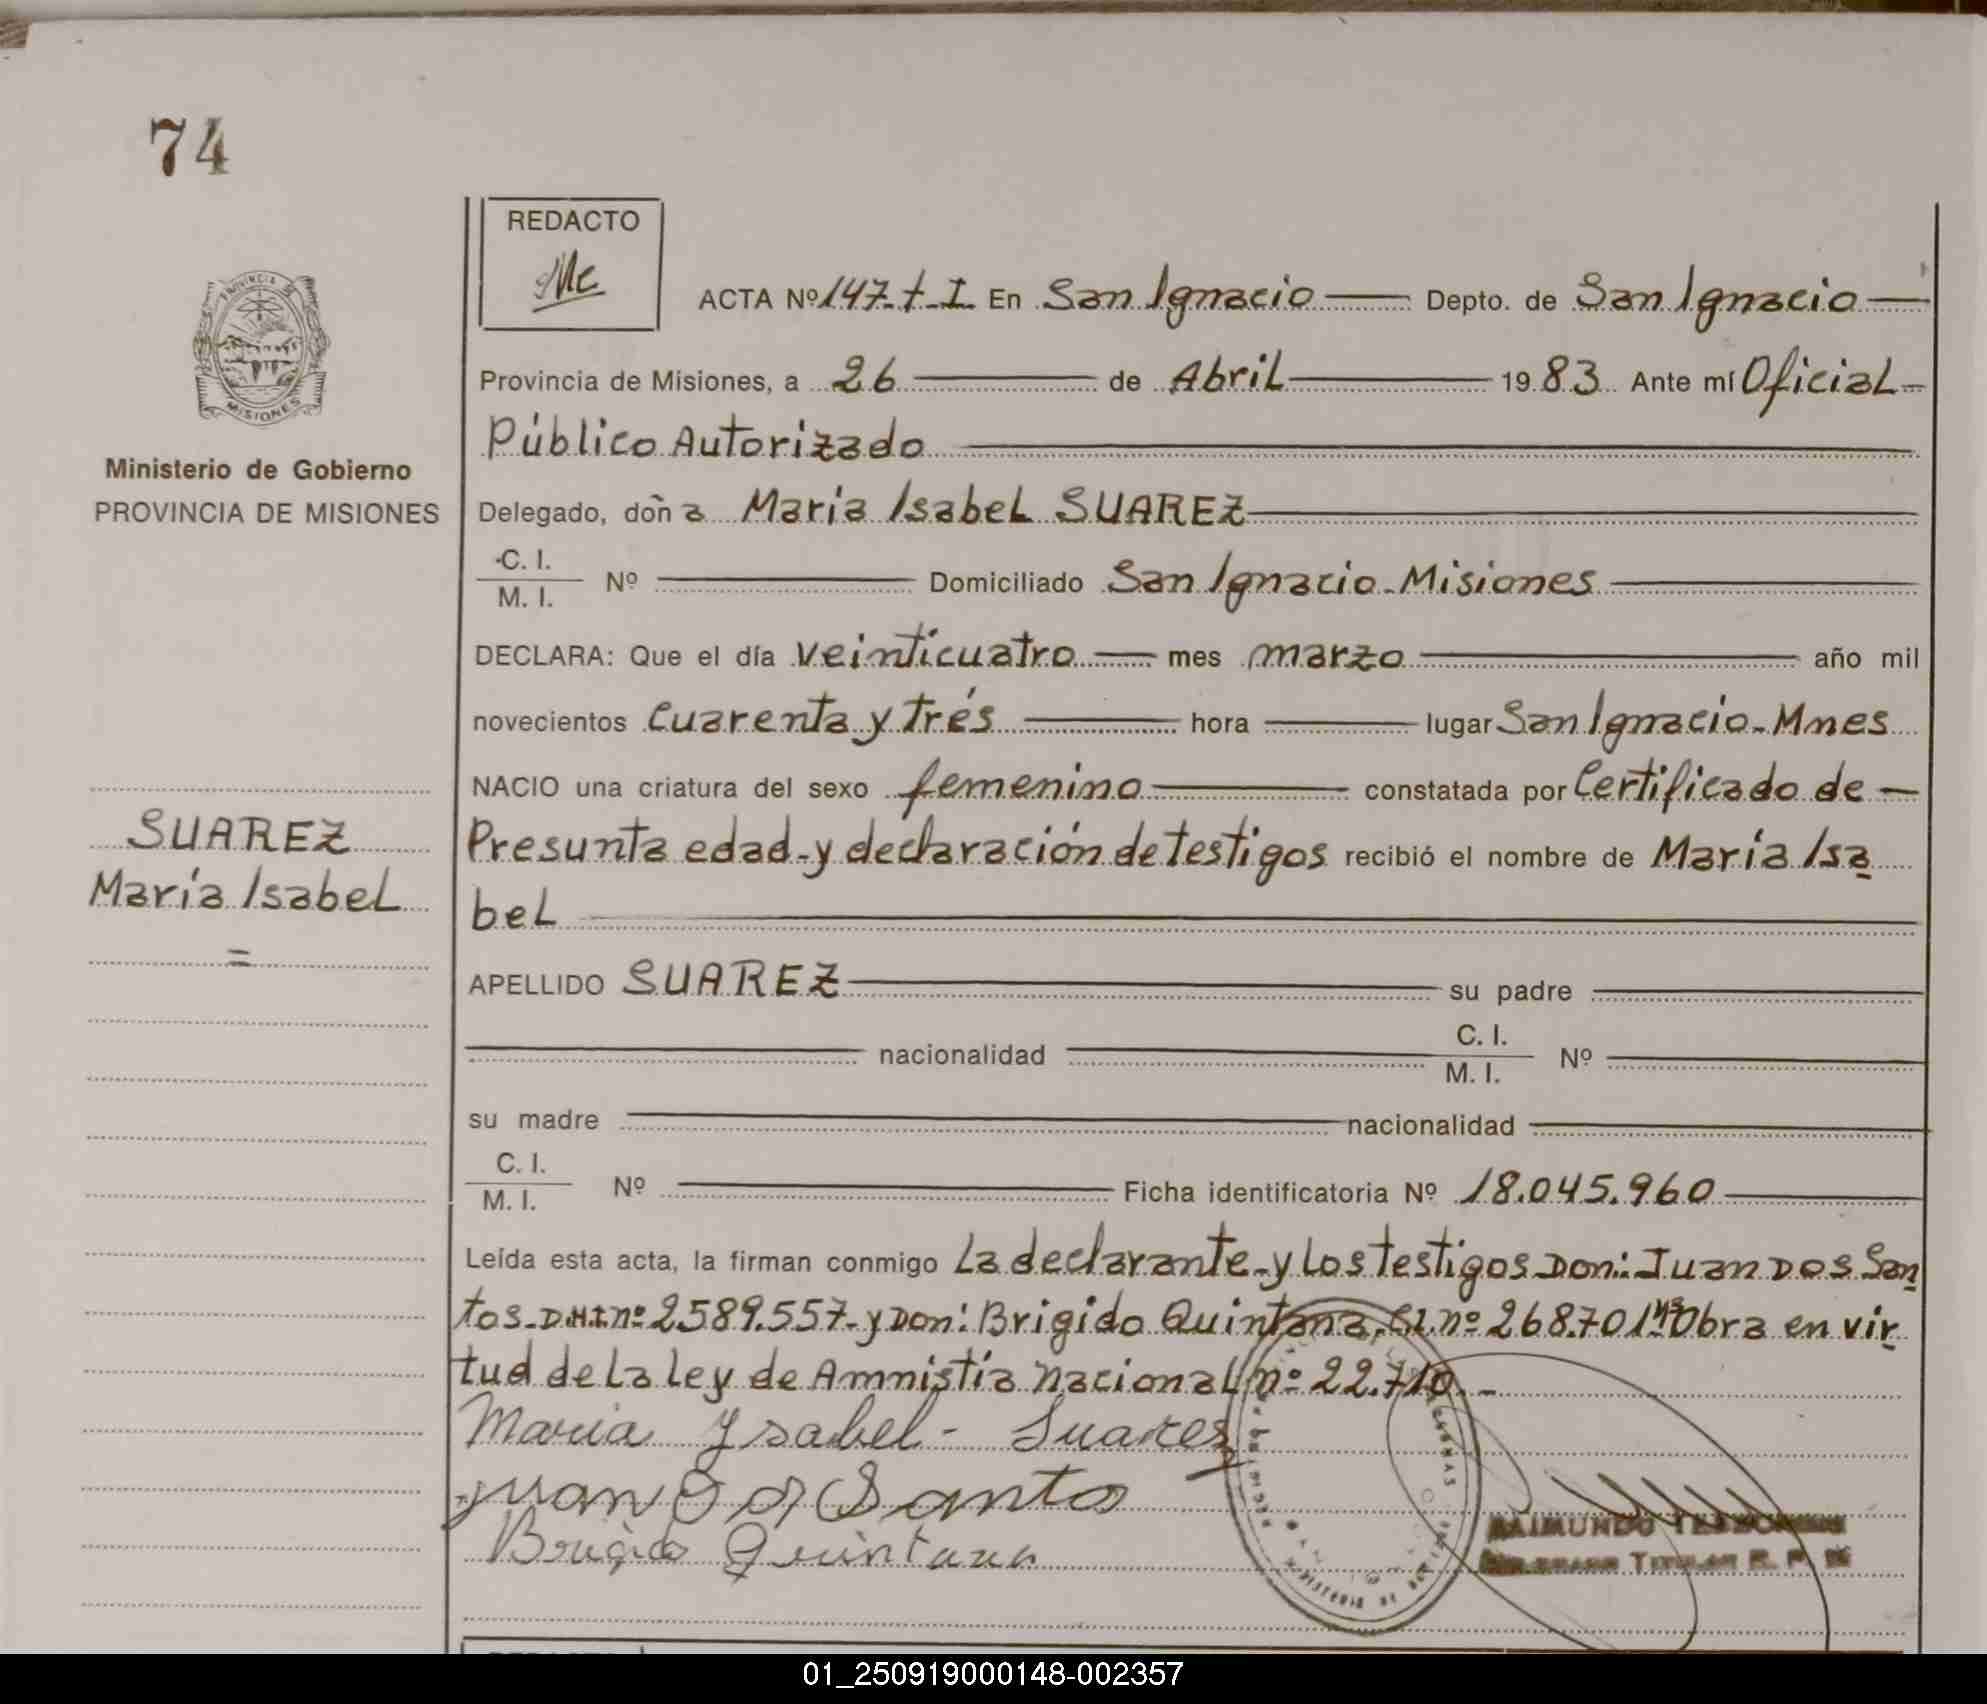 74
REDACTO
ACTA Nº 147-t-I En San Ignacio Depto. de San Ignacio
Provincia de Misiones, a 26 de Abril 1983 Ante mí Oficial
Público Autorizado
Ministerio de Gobierno
PROVINCIA DE MISIONES
Delegado, doña María Isabel SUAREZ
C. I.
M. I. Nº Domiciliado San Ignacio-Misiones
DECLARA: Que el día veinticuatro mes marzo año mil
novecientos Cuarenta y trés hora lugar San Ignacio-Mnes
NACIO una criatura del sexo femenino constatada por Certificado de
Presunta edad-y declaración de testigos recibió el nombre de María Isa
bel
SUAREZ
María Isabel
=
APELLIDO SUAREZ su padre
nacionalidad C. I.
M. I. Nº
su madre nacionalidad
C. I.
M. I. Nº Ficha identificatoria Nº 18.045.960
Leída esta acta, la firman conmigo La declarante-y Los testigos Don: Juan Dos San
tos-D.N.I nº 2589.557-y Don: Brigido Quintana, C.I. nº 268.701 Obra en vir
tud de La Ley de Amnistía Nacional nº 22.710.-
Maria Ysabel - Suares
Juan D os Santo
Brigido Quintana
RAIMUNDO
TITULAR R. P.
01_250919000148-002357